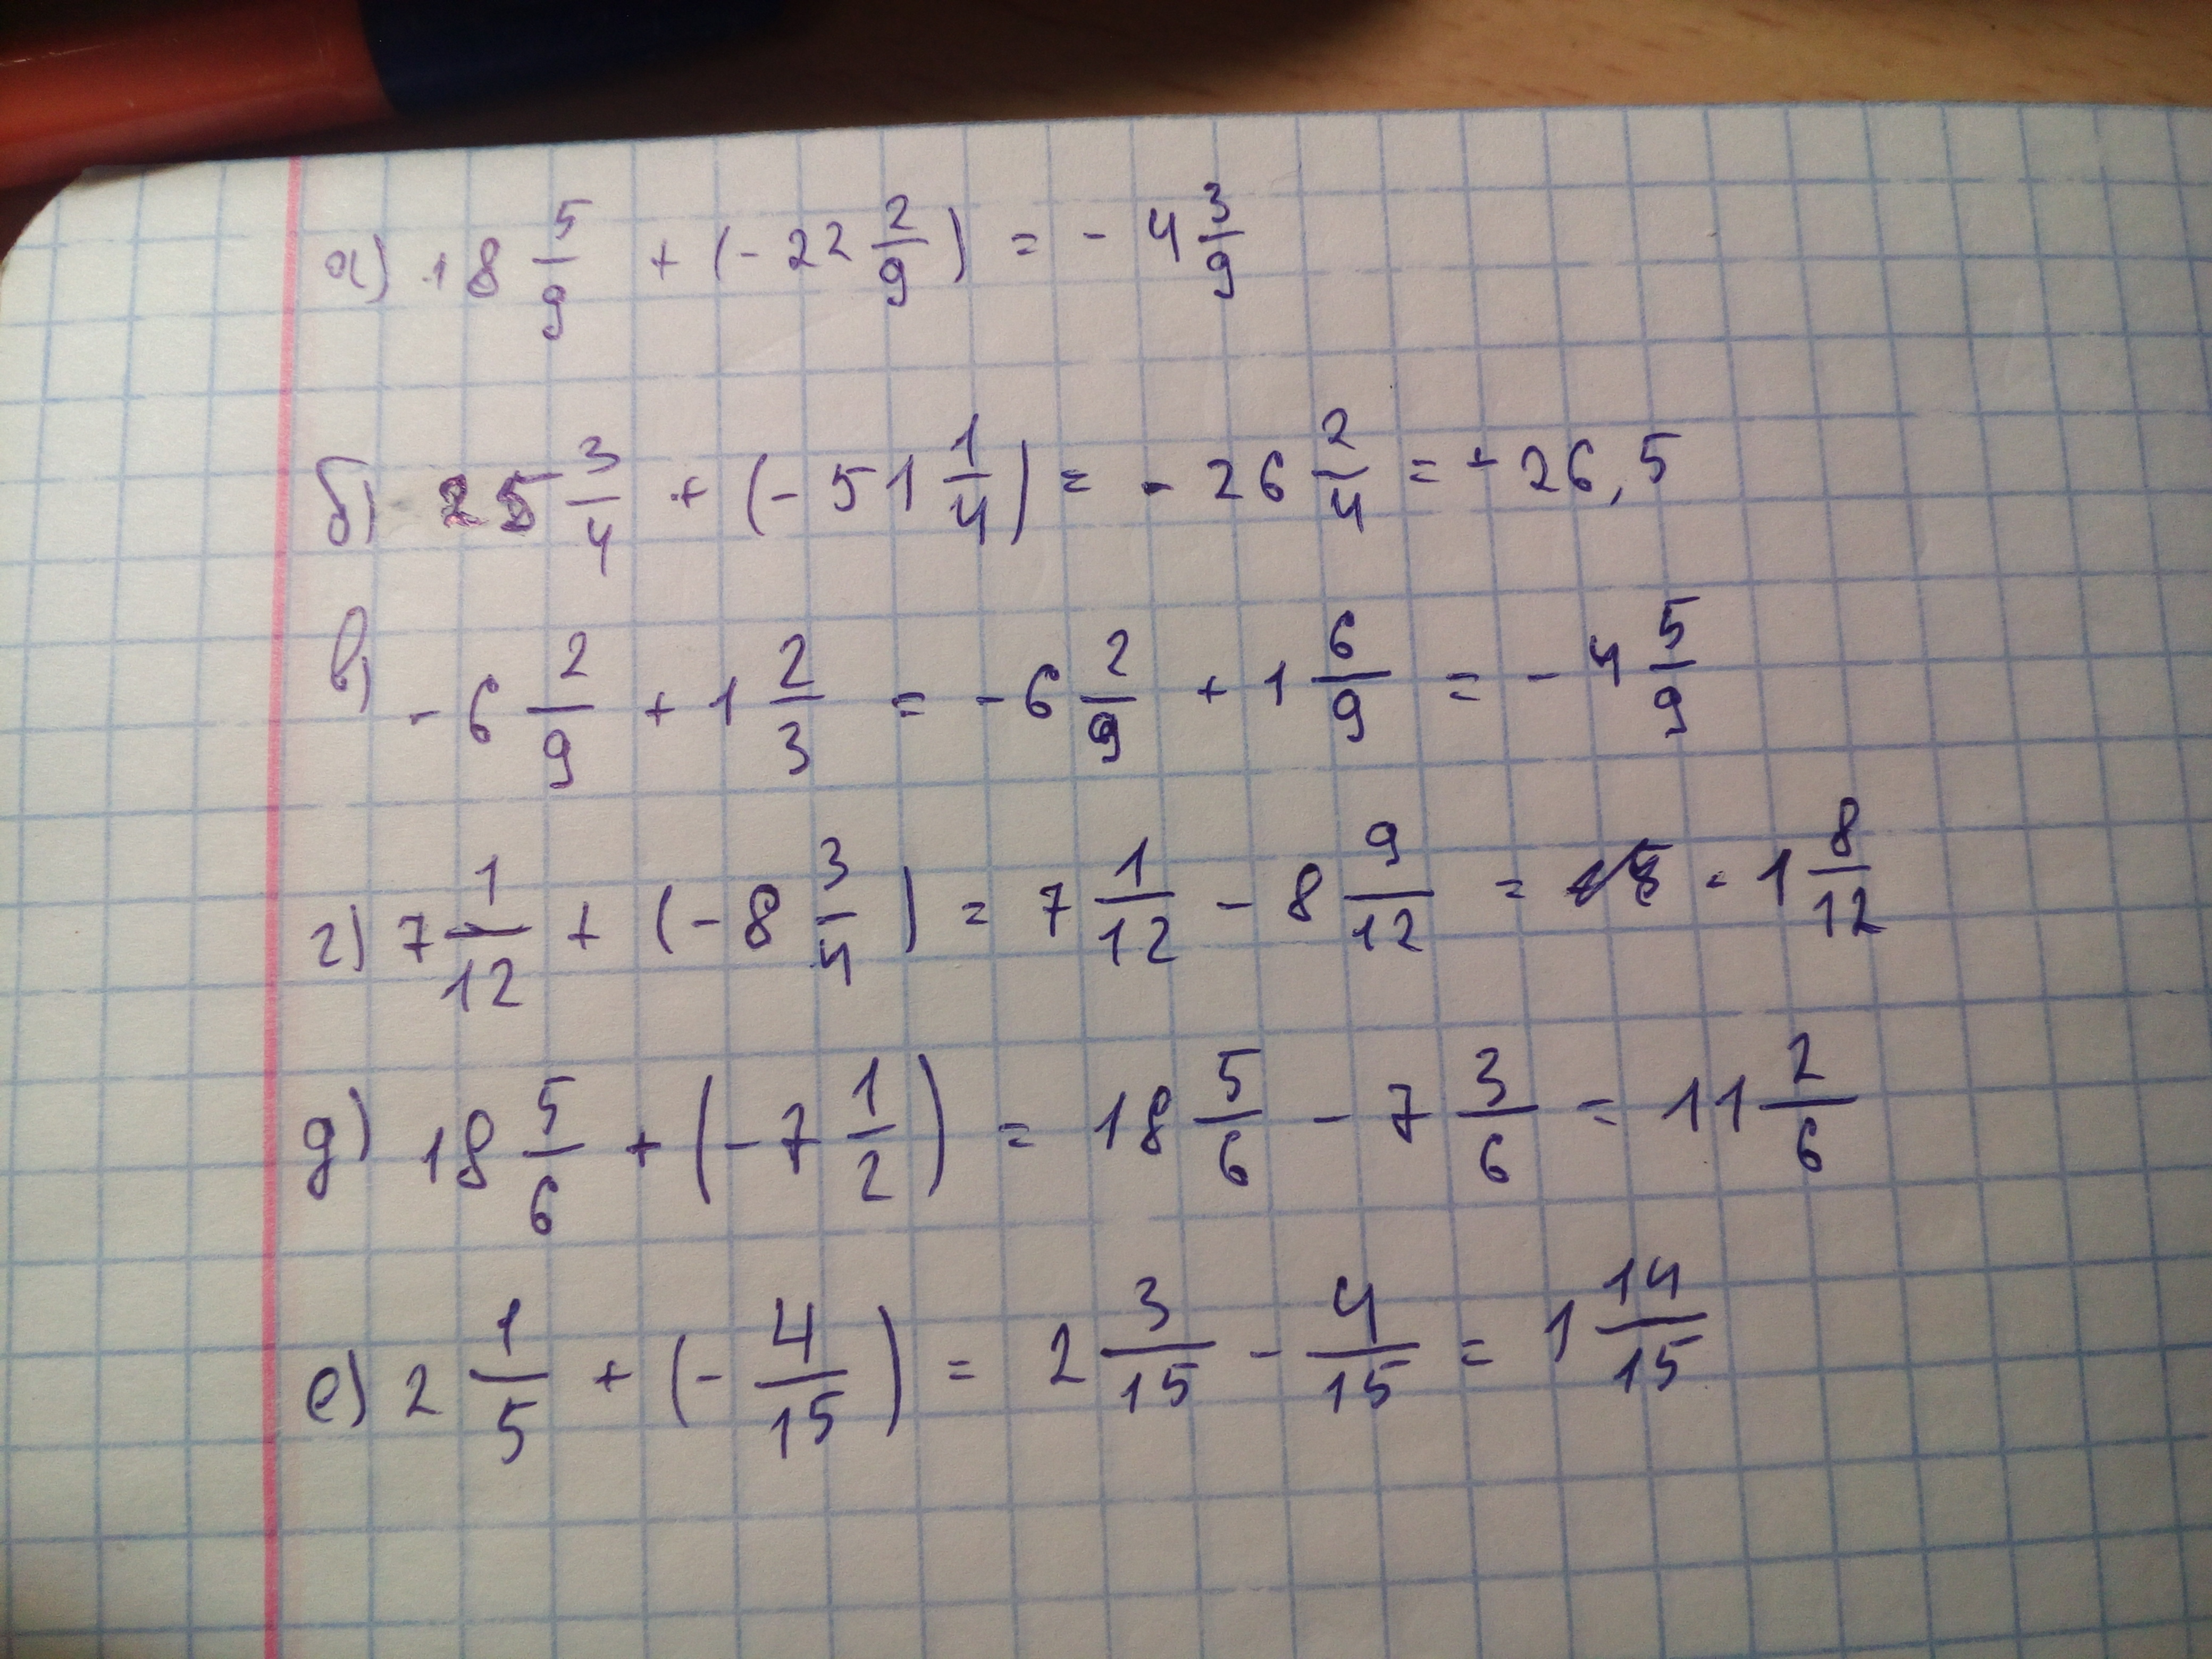 а) 18 5/9 + (- 22 2/9) = - 4 3/9
б) 25 3/4 + (- 51 1/4) = - 26 2/4 = - 26,5
в) - 6 2/9 + 1 2/3 = - 6 2/9 + 1 6/9 = - 4 5/9
г) 7 1/12 + (- 8 3/4) = 7 1/12 - 8 9/12 = - 1 8/12
д) 18 5/6 + (- 7 1/2) = 18 5/6 - 7 3/6 = 11 2/6
е) 2 1/5 + (- 4/15) = 2 3/15 - 4/15 = 1 14/15